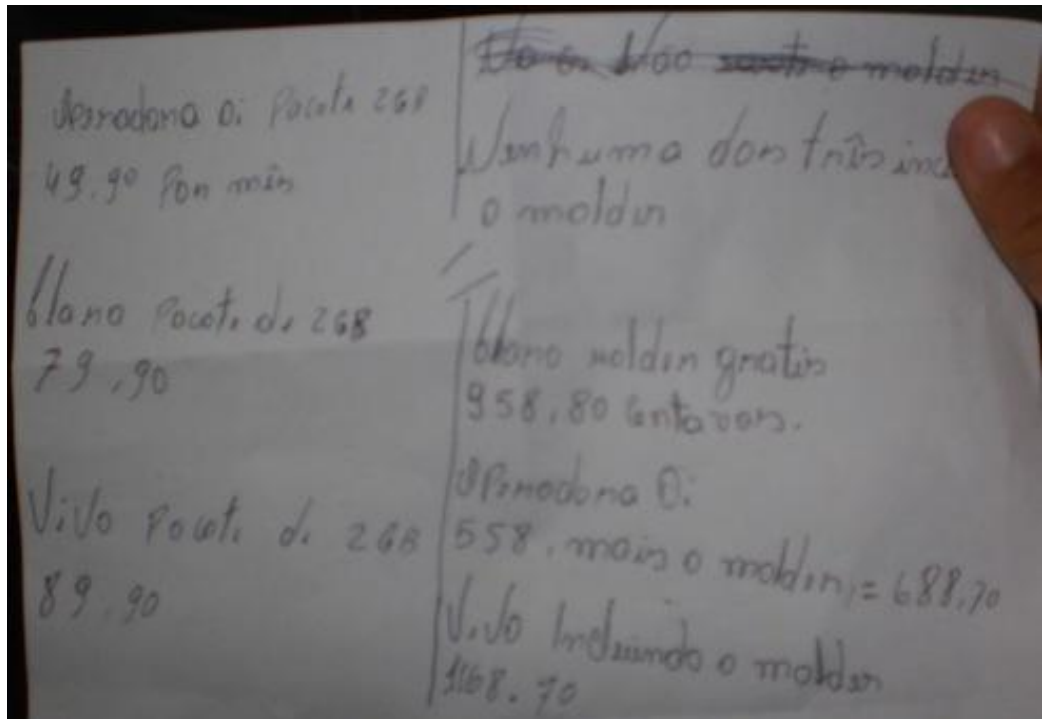 Operadora Oi Pacote 2GB
49.90 Por mês
Claro Pacote de 2GB
79,90
Vivo Pacote de 2GB
89,90
Não o molden
Nenhuma dos três
o molden
Claro molden gratis
958,80 Centavos.
Operadora Oi
558. mais o molden, = 688,70
Vivo Incluindo o molden
1168.70